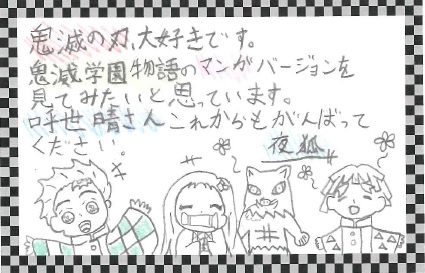 鬼滅の刃、大好きです。
鬼滅学園物語のマンガバージョンを
見てみたいと思っています。
呼世晴さんこれからもがんばって
ください。
夜狐